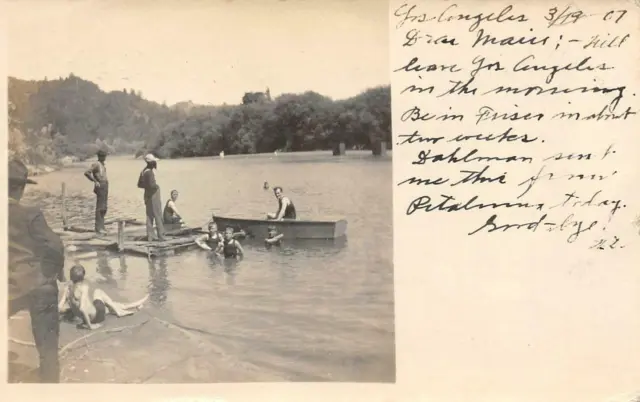 Los Angeles 3/19 07
Dear Maie; - Will
leave Los Angeles
in the morning.
Be in Frisco in about
two weeks.
Dahlman sent
me this from
Petaluma today.
Good-bye.